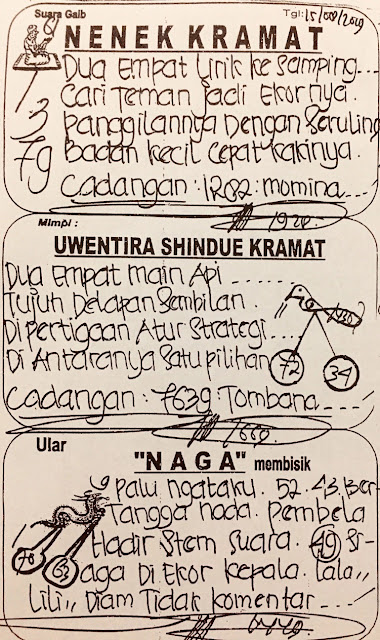 Suara Gaib
Tgl: 15/08/2019
NENEK KRAMAT
Dua Empat Lirik ke Samping...
Cari Teman Jadi Ekornya.
Panggilannya Dengan Seruling
Badan Kecil Cepat Kakinya.
Cadangan : 1282 : momina...
3
79
Mimpi :
UWENTIRA SHINDUE KRAMAT
Dua Empat Main Api ......
Tujuh Delapan Sembilan.
Di Pertigaan Atur Strategi...
Di Antaranya Satu pilihan
72
34
Cadangan : 7639 : Tombana....
Ular
"NAGA" membisik
Palu ngataku. 52. 43. Ber-
Tangga nada. Pembela
Hadir Stem Suara. 49 Si-
aga Di Ekor Kepala. lala,,
Lili,, Diam Tidak Komentar...
63